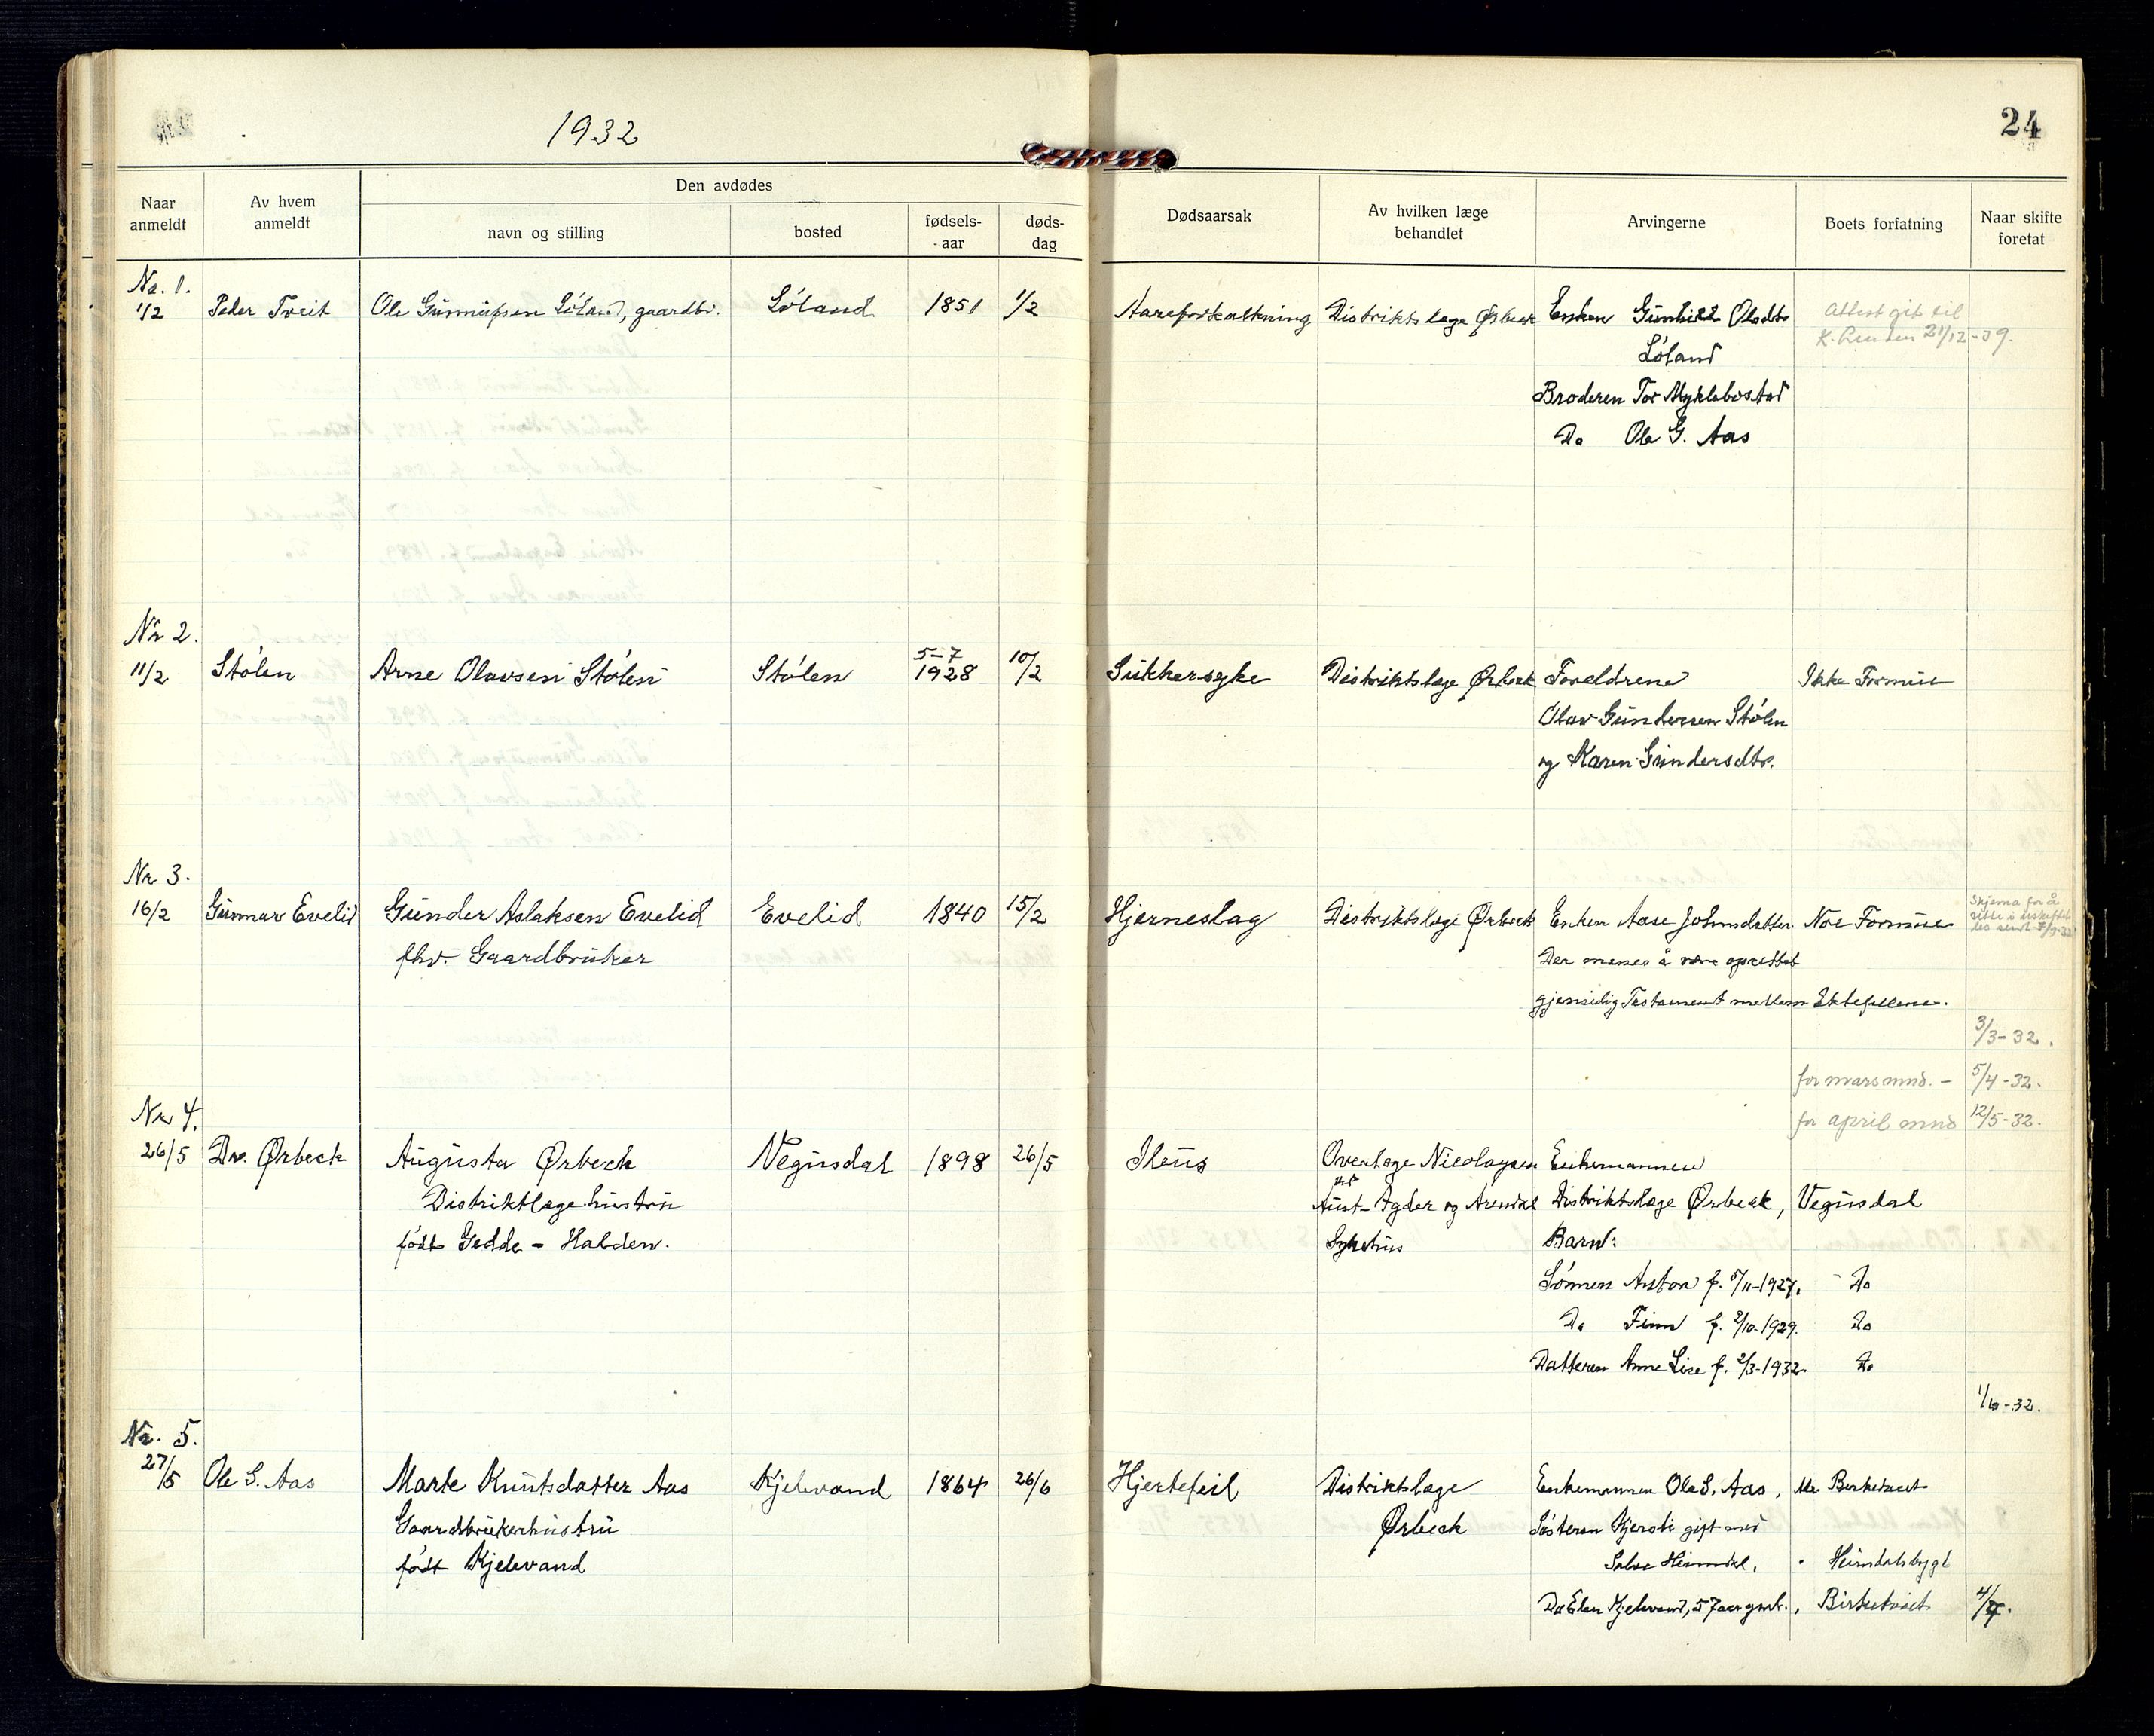 1932
24
Naar anmeldt
Av hvem anmeldt
Den avdødes
navn og stilling
bosted
fødsels-aar
døds-dag
Dødsaarsak
Av hvilken læge behandlet
Arvingerne
Boets forfatning
Naar skifte foretat
Nr. 1.
1/2 Peder Tveit Ole Gunnufsen Løland, gaardbr. Løland 1851 1/2 Aareforkalkning Distriktslæge Ørbeck Enken Gunhild Olsdtr
Løland
Broderen Tor Myklebostad
Do Ole G. Aas
Attest git til
21/12-39.
Nr 2.
11/2 Stølen Arne Olavsen Stølen Stølen 5-7
1928 10/2 Sukkersyke Distriktslæge Ørbeck Foreldrene Ikke Formue
Olav Gundersen Stølen
og Karen Gundersdtr.
Nr 3.
16/2 Gunnar Evelid Gunder Aslaksen Evelid Evelid 1840 15/2 Hjerneslag Distriktslæge Ørbeck Enken Aase Johnsdatter Noe Formue
Skjema for å
sitte i uskiftet
bo sendt
fhv. Gaardbruker Der menes å være oprettet
gjensidig Testament mellem Ektefellene.
3/3-32.
for mars mnd. - 5/4-32.
for april mnd 12/5-32.
Nr 4.
26/5 Dr. Ørbeck Augusta Ørbeck Vegusdal 1898 26/5 Ileus Overlæge Nicolaysen Enkemannen
Distriktlægehustru ved Aust-Agder og Arendal Distriktslæge Ørbeck, Vegusdal
født Gedde - Halden. Sykehus Barn:
Sønnen Anton f. 5/11-1927. Do
Do Finn f. 2/10-1929. Do
Datteren Anne Lise f. 2/3-1932. Do
1/6-32.
Nr. 5.
27/5 Ole S. Aas Marte Knutsdatter Aas Kjelevand 1864 26/6 Hjertefeil Distriktslæge Enkemannen Ole S. Aas, Birketveit
Gaardbrukerhustru Ørbeck Søsteren Kjersti gift med
født Kjelevand Salve Heimdal, Heimdalsbygd
Do Elen Kjelevand, 57 aar gml., Birketveit 4/7.